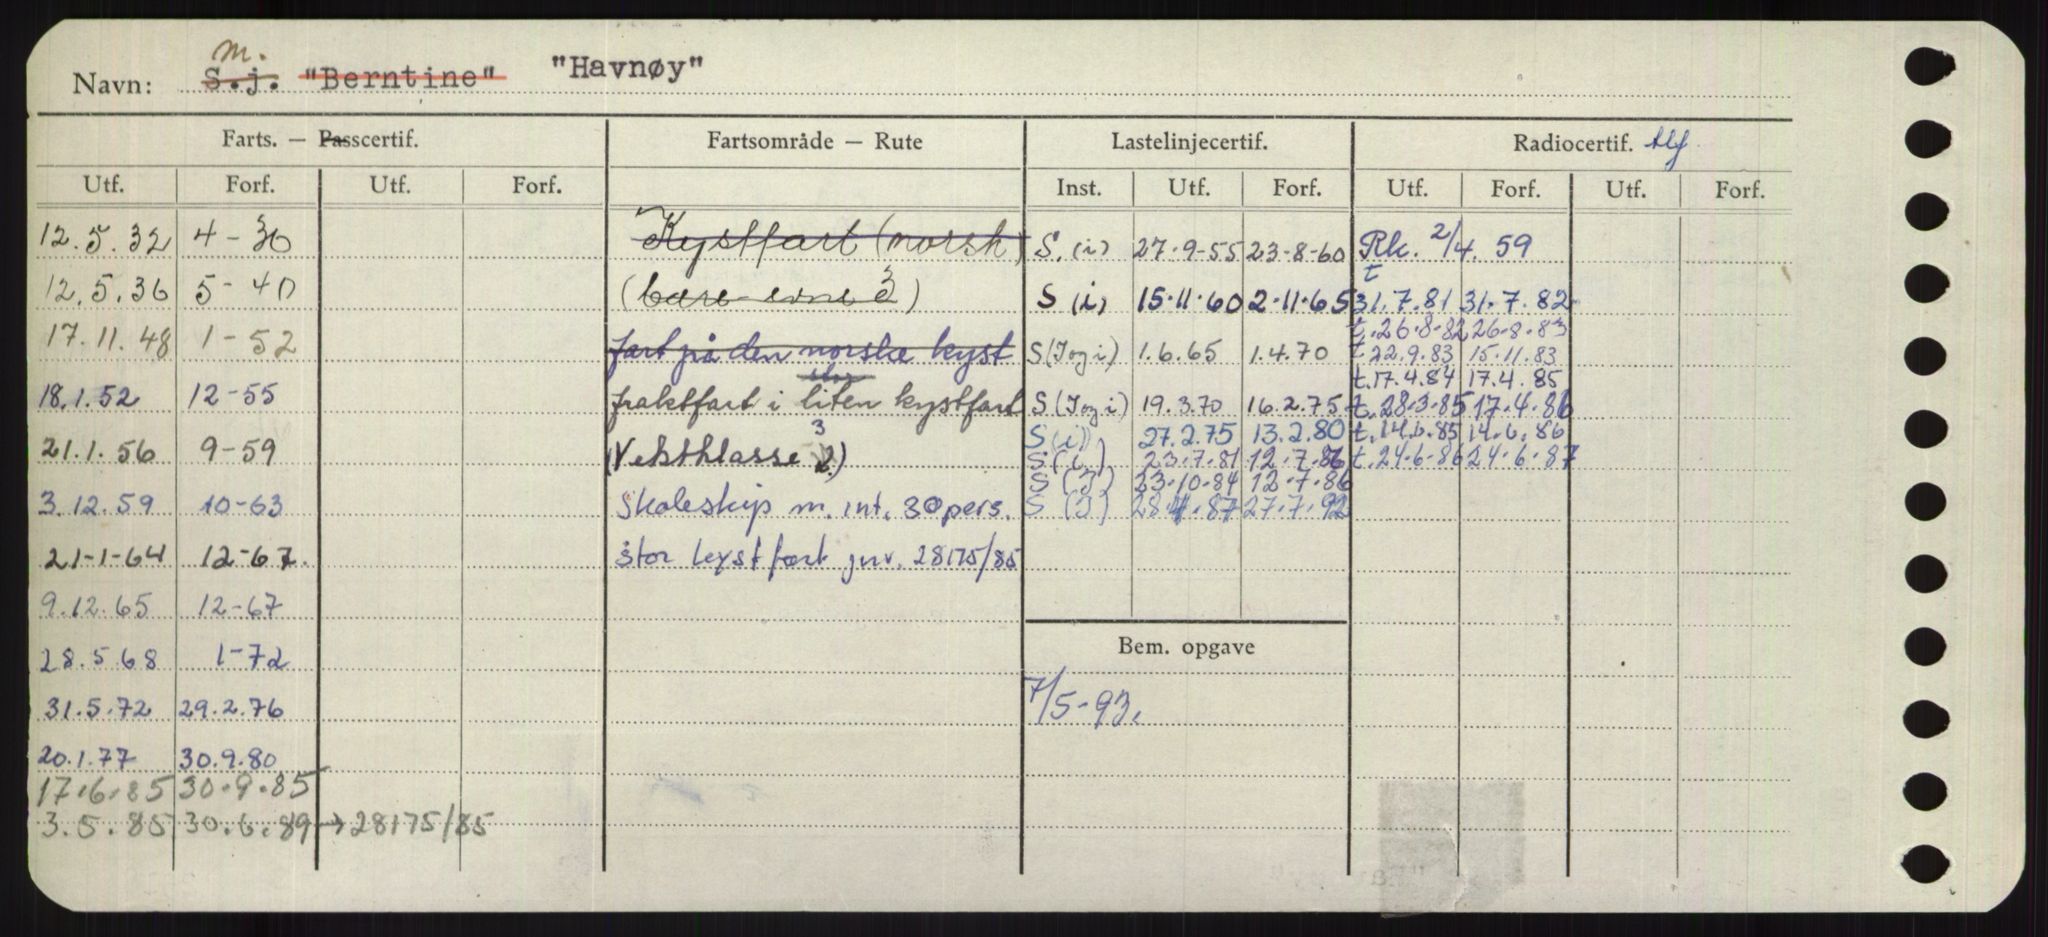 m.
Navn: S.j. "Berntine" "Havnøy"
Farts. — Passcertif. Fartsområde — Rute Lastelinjecertif. Radiocertif.
Utf. Forf. Utf. Forf. Inst. Utf. Forf. Utf. Forf. Utf. Forf.
12.5.32 4-36 Kystfart (norsk) S. (i) 27-9-55 23-8-60 Rk. 2/4. 59
12.5.36 5-40 (bære evne 2) S (i) 15.11.60 2.11.65 t 31.7.81 31.7.82
t.26.8.82 26.8.83
17.11.48 1-52 fart på den norske kyst S (I og i) 1.6.65 1.4.70 t.22.9.83 15.11.83
stor t.17.4.84 17.4.85
18.1.52 12-55 fraktfart i liten kystfart S (I og i) 19.3.70 16.2.75 t.28.3.85 17.4.86
S (i) 27.2.75 13.2.80 t.14.6.85 14.6.86
21.1.56 9-59 (Vektklasse 3) S (i) 23.7.81 12.7.86 t.24.6.86 24.6.87
S (I) 23.10.84 12.7.86
3.12.59 10-63 Skoleskip m. int. 30 pers. S (I) 28.4.87 27.7.92
21-1-64 12-67. stor kystfart jnr. 28175/85
9.12.65 12-67
28.5.68 1-72 Bem. opgave
31.5.72 29.2.76 7/5-93.
20.1.77 30.9.80
17.6.85 30.9.85
3.5.85 30.6.89 → 28175/85